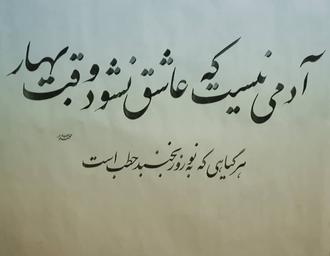 آدمی نیست که عاشق نشود وقت بهار
هر گیاهی که به نوروز نجنبد حطب است